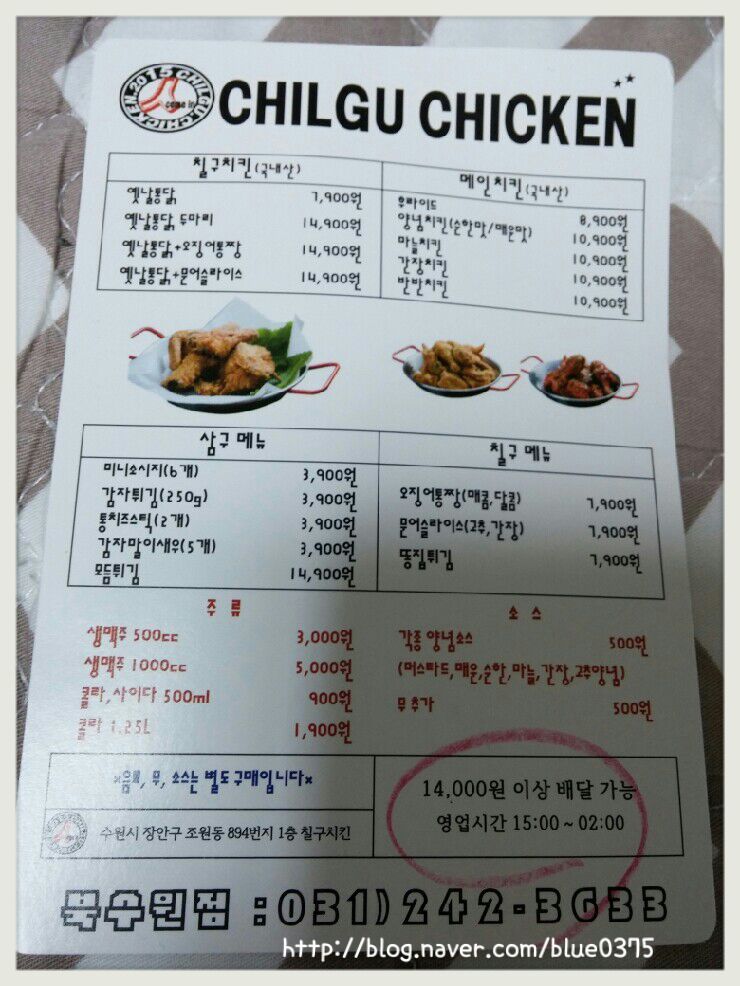 2015 CHILGU CHICKEN
come in
CHILGU CHICKEN
칠구치킨(국내산)
옛날통닭 7,900원
옛날통닭 두마리 14,900원
옛날통닭+오징어통짱 14,900원
옛날통닭+문어슬라이스 14,900원
메인치킨(국내산)
후라이드 8,900원
양념치킨(순한맛/매운맛) 10,900원
마늘치킨 10,900원
간장치킨 10,900원
반반치킨 10,900원
삼구 메뉴
미니소시지(6개) 3,900원
감자튀김(250g) 3,900원
통치즈스틱(2개) 3,900원
감자말이새우(5개) 3,900원
모듬튀김 14,900원
칠구 메뉴
오징어통짱(매콤,달콤) 7,900원
문어슬라이스(고추,간장) 7,900원
똥집튀김 7,900원
주 류
생맥주 500cc 3,000원
생맥주 1000cc 5,000원
콜라,사이다 500ml 900원
콜라 1.25L 1,900원
소 스
각종 양념소스 500원
(머스타드,매운,순한,마늘,간장,고추양념)
무 추가 500원
무, 소스는 별도 구매입니다*
수원시 장안구 조원동 894번지 1층 칠구치킨
14,000원 이상 배달 가능
영업시간 15:00 ~ 02:00
북수원점 : 031) 242-3633
http://blog.naver.com/blue0375